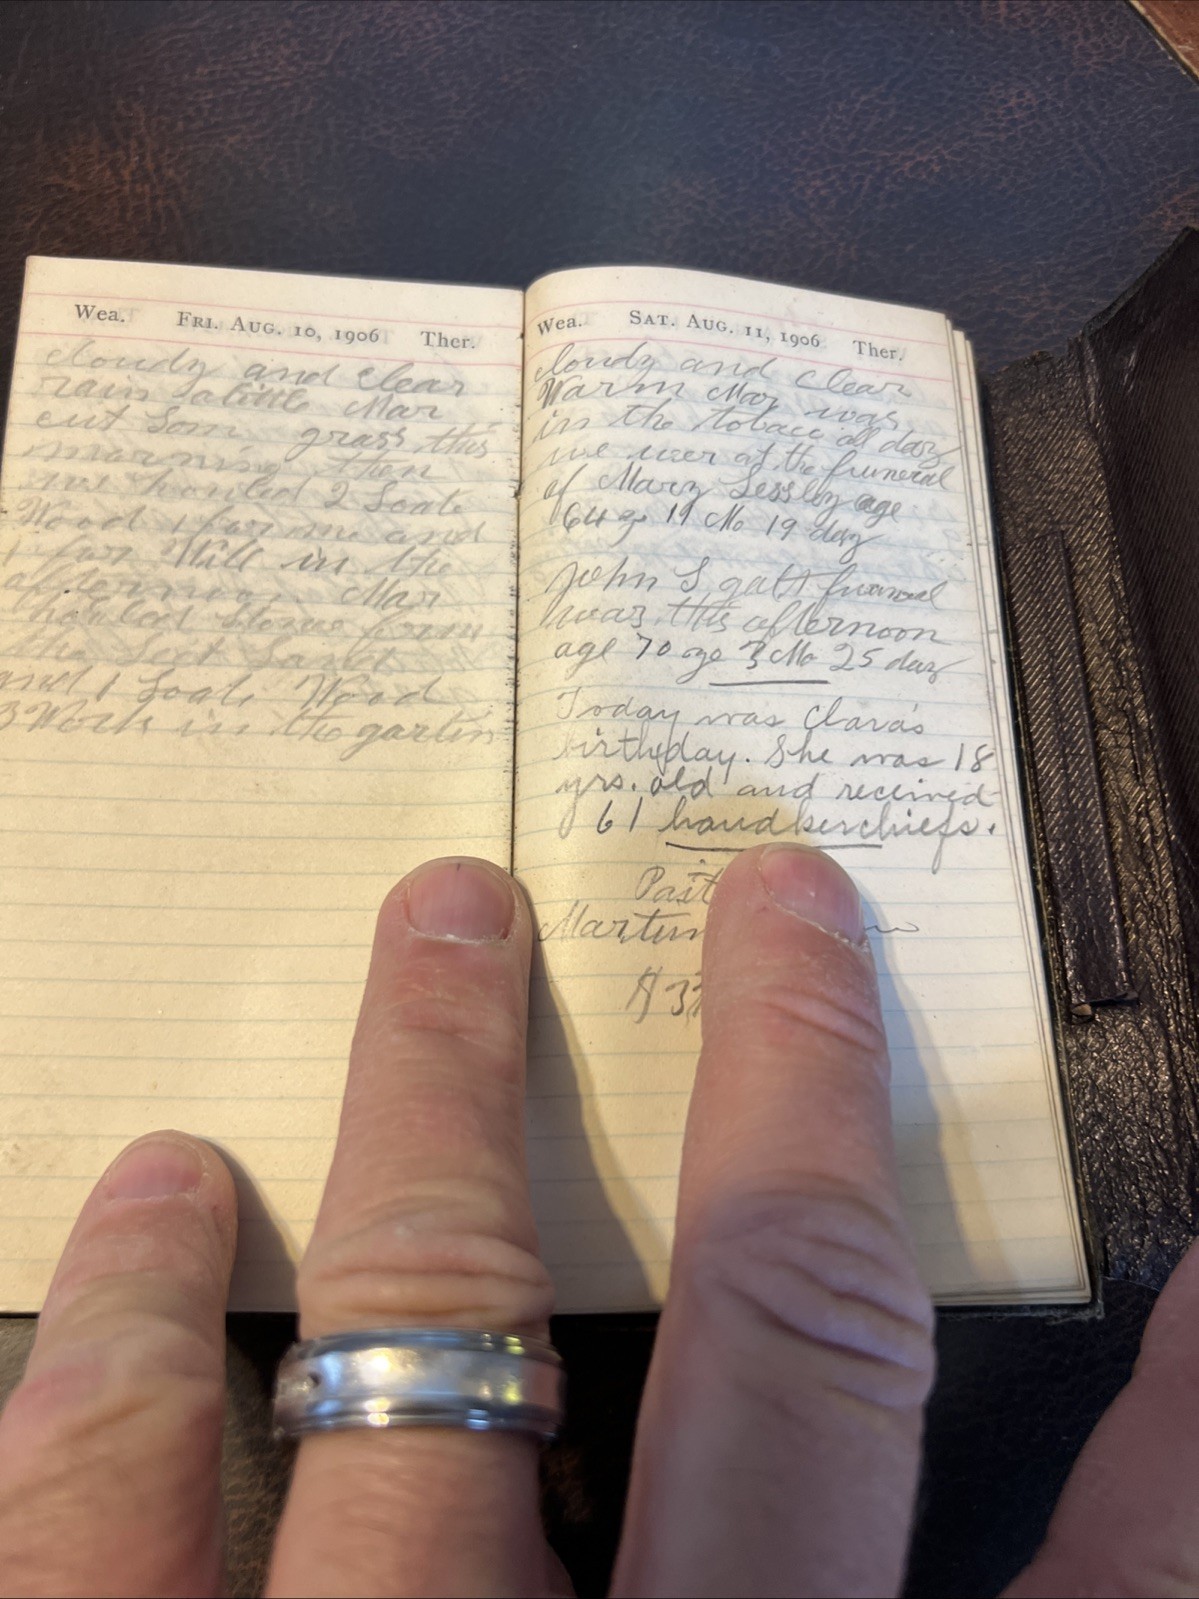 Wea. FRI. AUG. 10, 1906 Ther.
cloudy and clear
rain a little Mar
cut Som grass this
morning then
we hauled 2 Loads
Wood 1 for me and
1 for Will in the
afternoon Mar
hauled stones from
the
and 1 Load Wood
3 Work in the garten
Wea. SAT. AUG. 11, 1906 Ther.
cloudy and clear
Warm Mar was
in the tobacc all day
we wer at the funeral
of Mary age
64 y 11 Mo 19 day
John S galt funeral
was this afternoon
age 70 age 3 Mo 25 day
Today was Clara's
birthday. She was 18
yrs. old and received
61 handkerchiefs.
Martin
$ 37